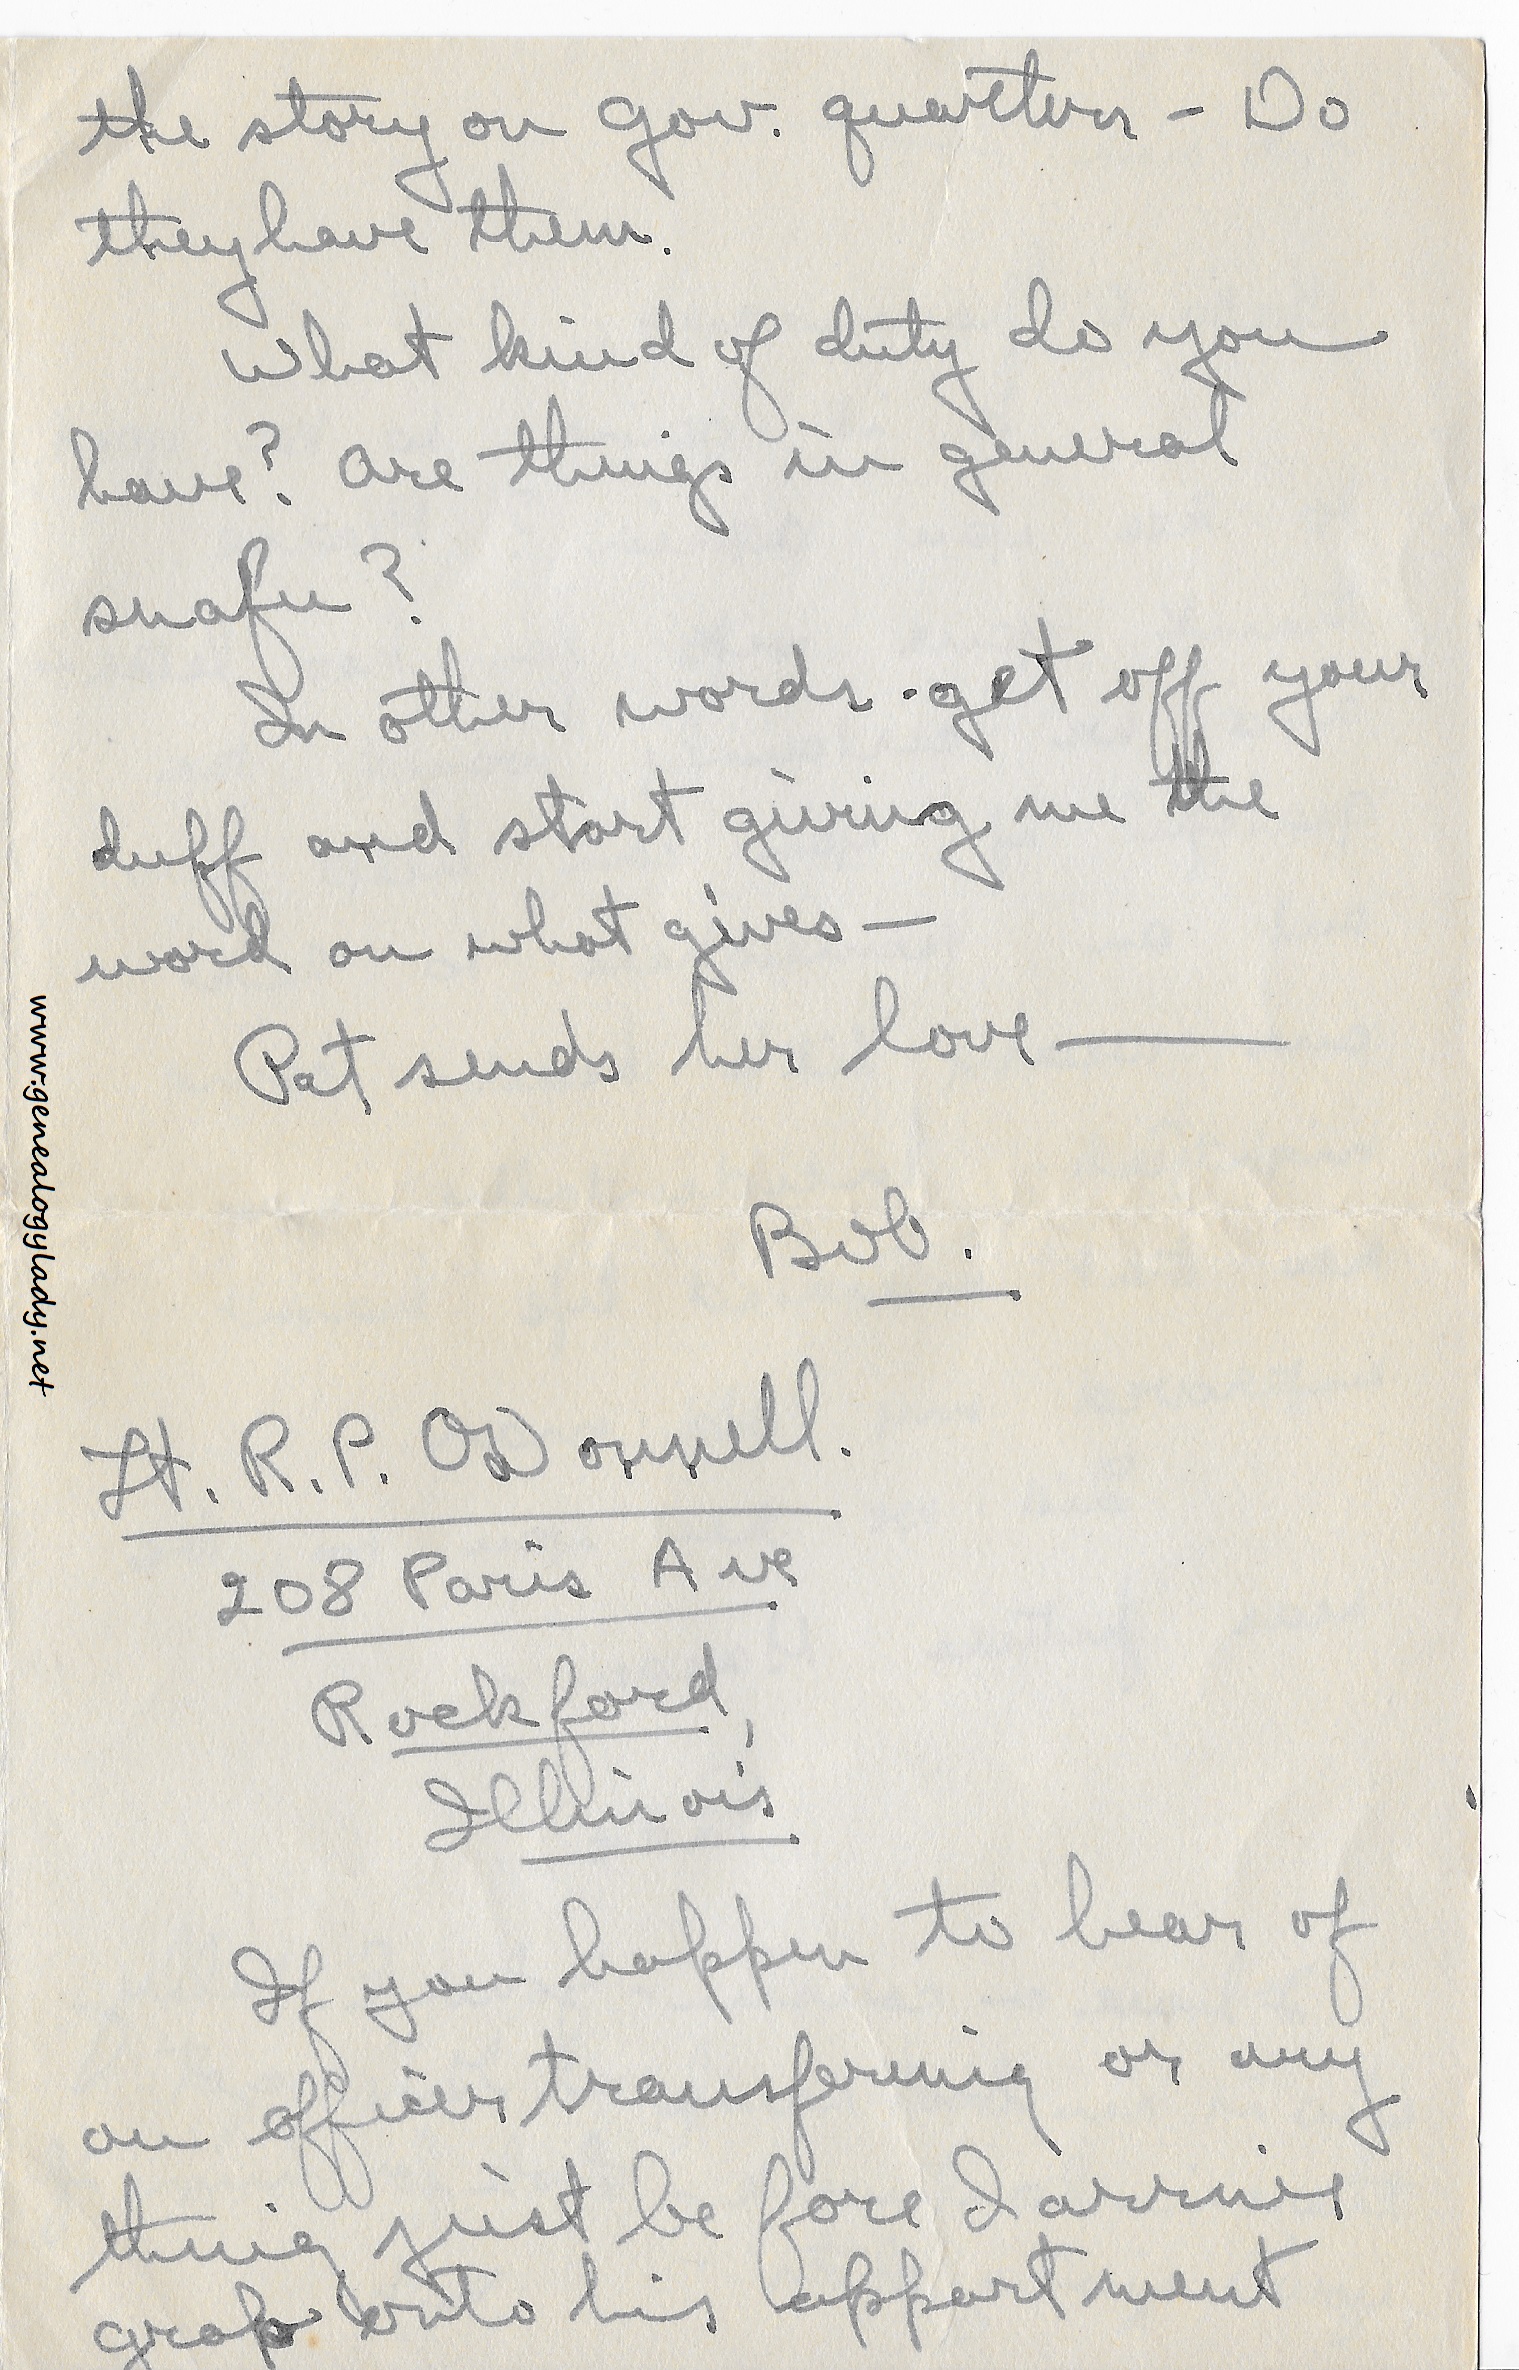 the story on gov. quarters – Do
they have them.
What kind of duty do you
have? Are things in general
snafu?
In other words - get off your
duff and start giving me the
word on what gives —
Pat sends her love ——
Bob.
Lt. R. P. O'Donnell.
208 Paris Ave
Rockford,
Illinois
If you happen to hear of
an officer transfering or any
thing just before I arrive
grab onto his appartment
www.genealogylady.net